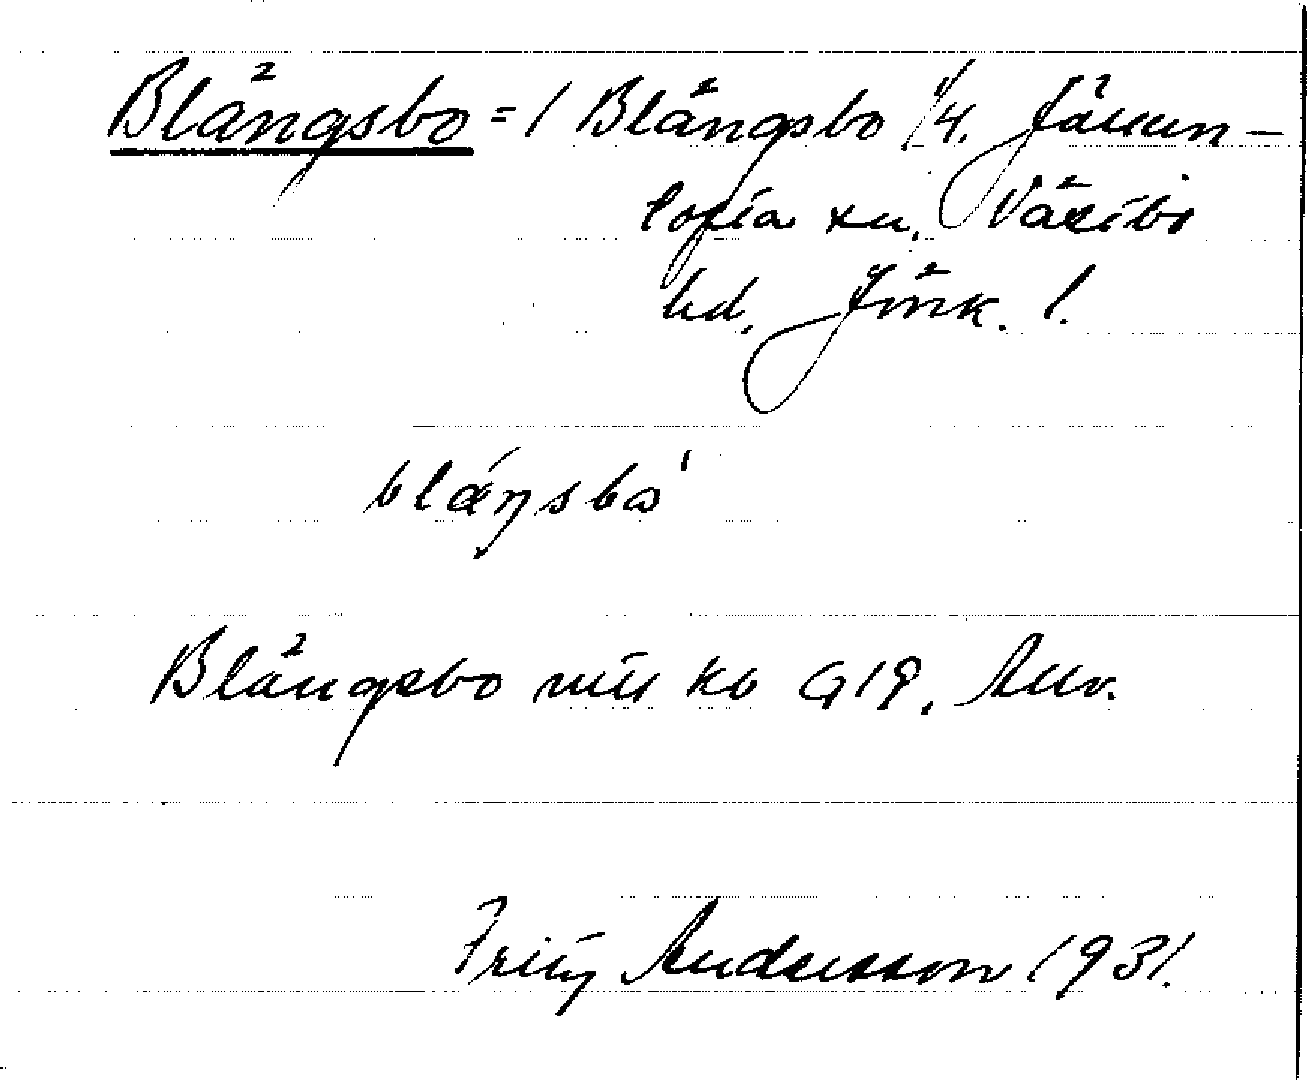 Blängsbo = / Blängsbo 1/4. Jällun-
tofta sn, Västbo
hd, Jönk. l.
bláŋsbo'
Blängsbo mtl kb G 19. Allm.
Fritz Andersson 1931.